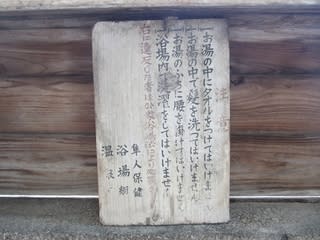 注意
一お湯の中にタオルをつけてはいけません
一お湯の中で髪を洗つてはいけません
一お湯のふちに腰を掛けてはいけません
一浴場内で洗濯をしてはいけません
右に違反した者は
隼人保健
浴場
温